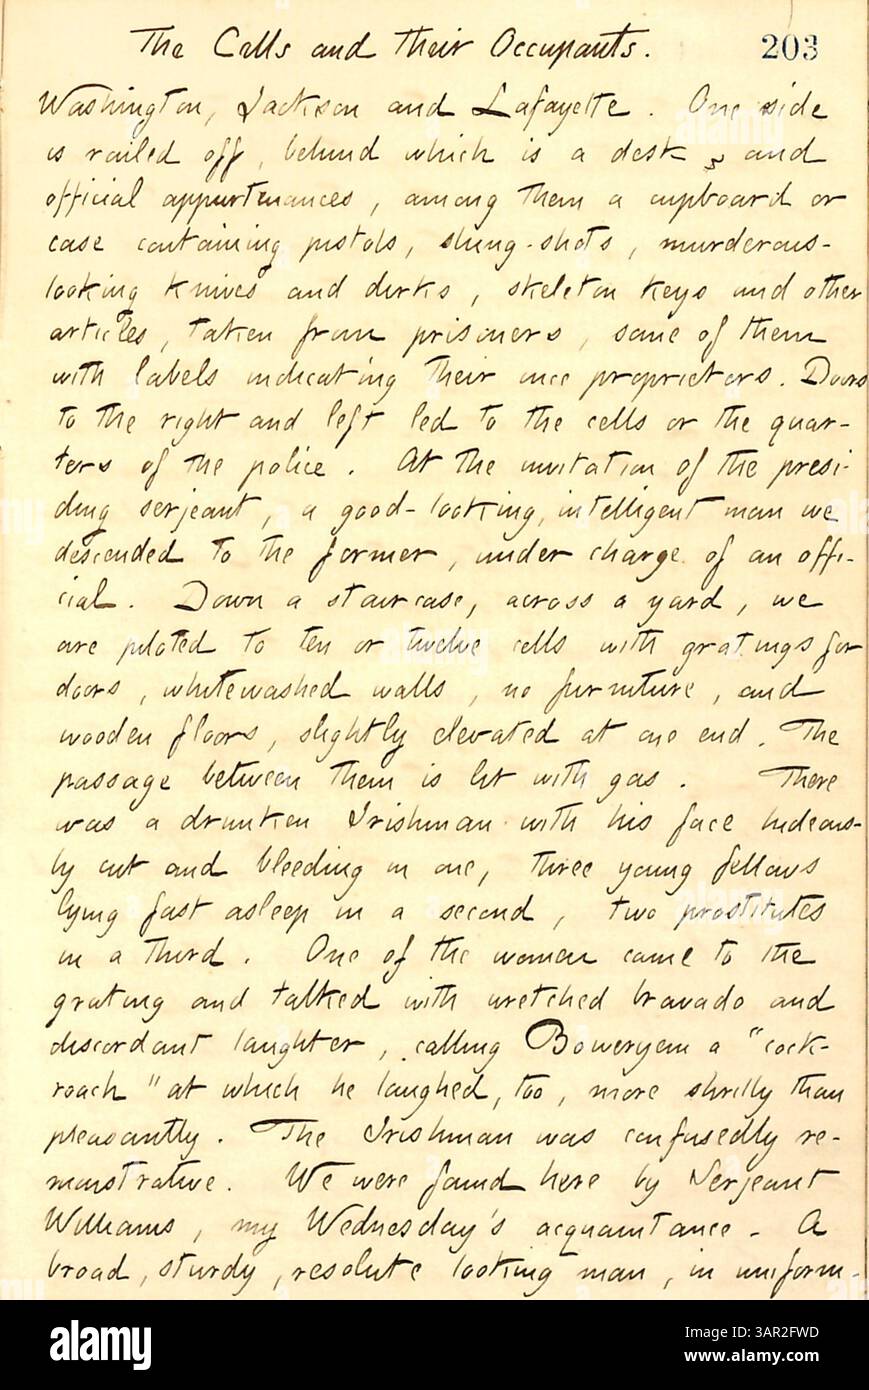 The Cells and their Occupants. 203
Washington, Jackson and Lafayette. One side
is railed off, behind which is a desk, and
official appurtenances, among them a cupboard or
case containing pistols, slung-shots, murderous-
looking knives and dirks, skeleton keys and other
articles, taken from prisoners, some of them
with labels indicating their once proprietors. Doors
to the right and left led to the cells or the quar-
ters of the police. At the invitation of the presi-
ding serjeant, a good-looking, intelligent man we
descended to the former, under charge of an offi-
cial. Down a staircase, across a yard, we
are piloted to ten or twelve cells with gratings for
doors, whitewashed walls, no furniture, and
wooden floors, slightly elevated at one end. The
passage between them is lit with gas. There
was a drunken Irishman with his face hideous-
ly cut and bleeding in one, three young fellows
lying fast asleep in a second, two prostitutes
in a third. One of the women came to the
grating and talked with wretched bravado and
discordant laughter, calling Boweryem a "cock-
roach" at which he laughed, too, more shrilly than
pleasantly. The Irishman was confusedly re-
monstrative. We were found here by Serjeant
Williams, my Wednesday's acquaintance. A
broad, sturdy, resolute looking man, in uniform-
alamy
Image ID: 3AR2FWD
www.alamy.com